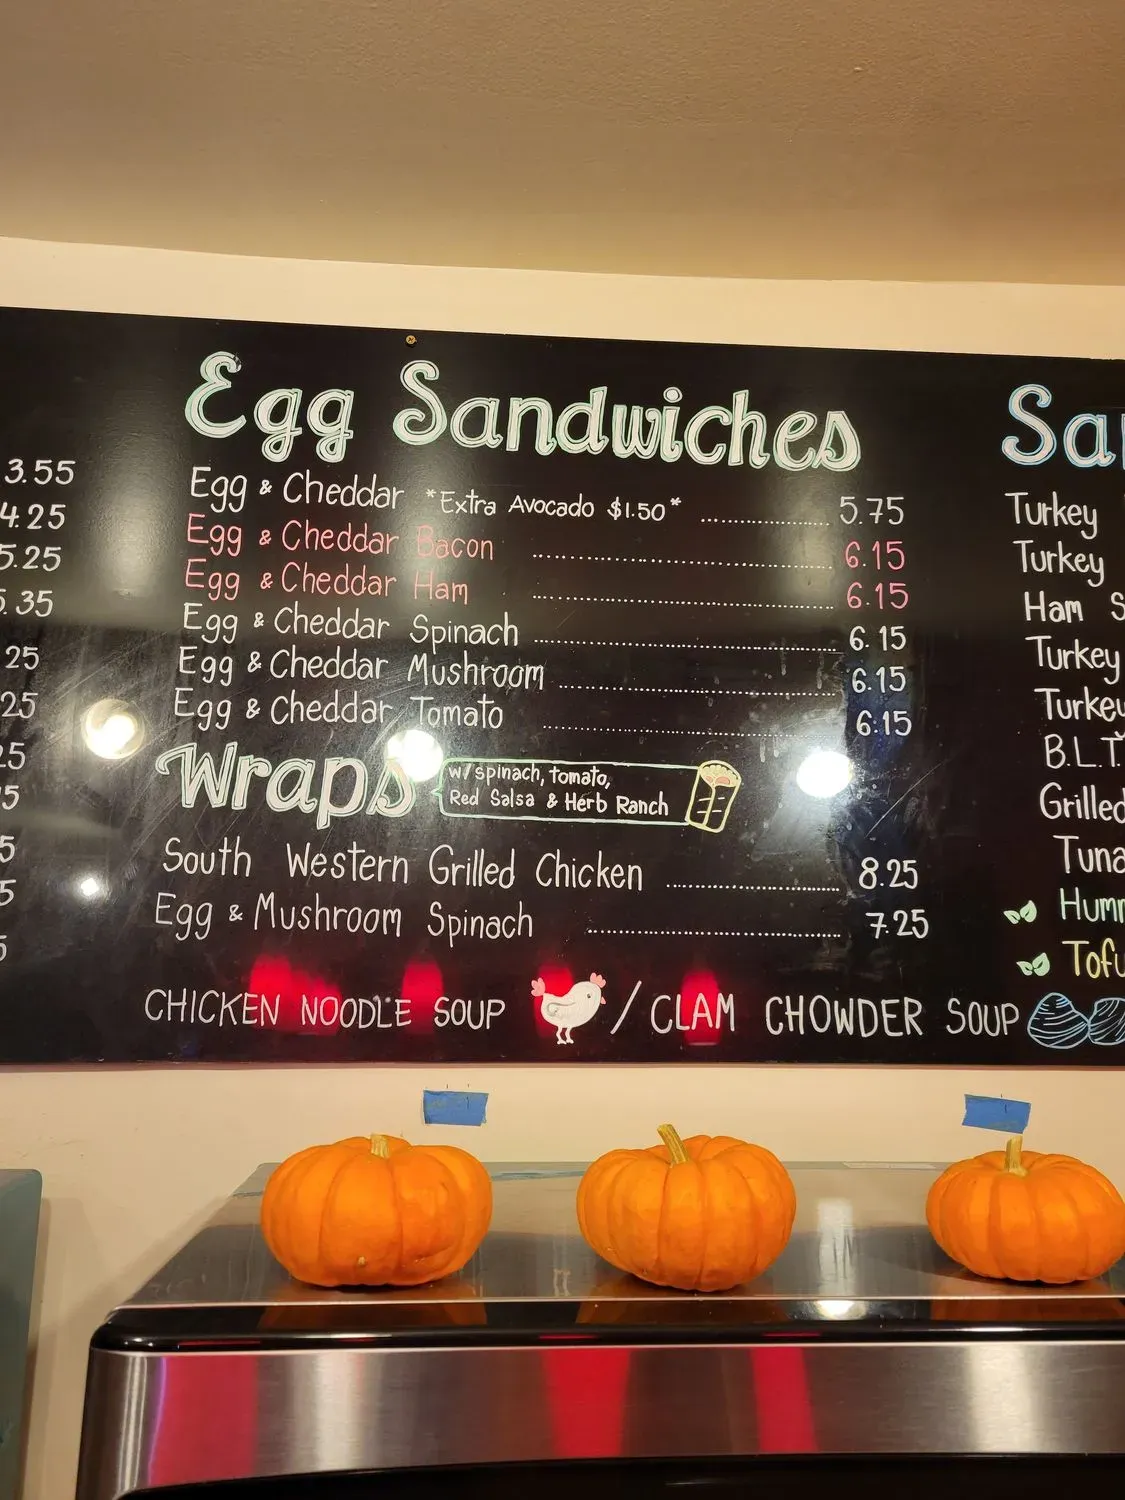 3.55
4.25
5.25
5.35
25
25
25
5
5
5
5
Egg Sandwiches
Egg & Cheddar *Extra Avocado $1.50* 5.75
Egg & Cheddar Bacon 6.15
Egg & Cheddar Ham 6.15
Egg & Cheddar Spinach 6.15
Egg & Cheddar Mushroom 6.15
Egg & Cheddar Tomato 6.15
Wraps
w/spinach, tomato,
Red Salsa & Herb Ranch
South Western Grilled Chicken 8.25
Egg & Mushroom Spinach 7.25
CHICKEN NOODLE SOUP / CLAM CHOWDER SOUP
Turkey
Turkey
Ham
Turkey
Turkey
B.L.T.
Grilled
Tuna